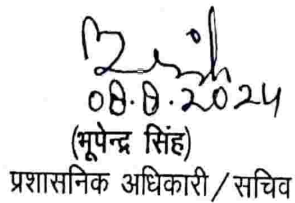 08.8.2024
(भूपेन्द्र सिंह)
प्रशासनिक अधिकारी / सचिव